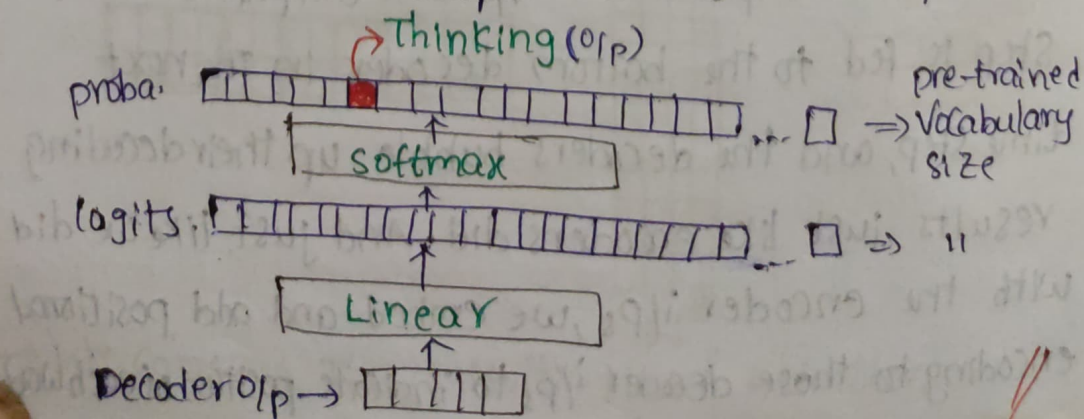 Thinking (O/p)
proba.
pre-trained
⇒ Vocabulary
size
softmax
logits.
⇒ "
Linear
Decoder O/p →